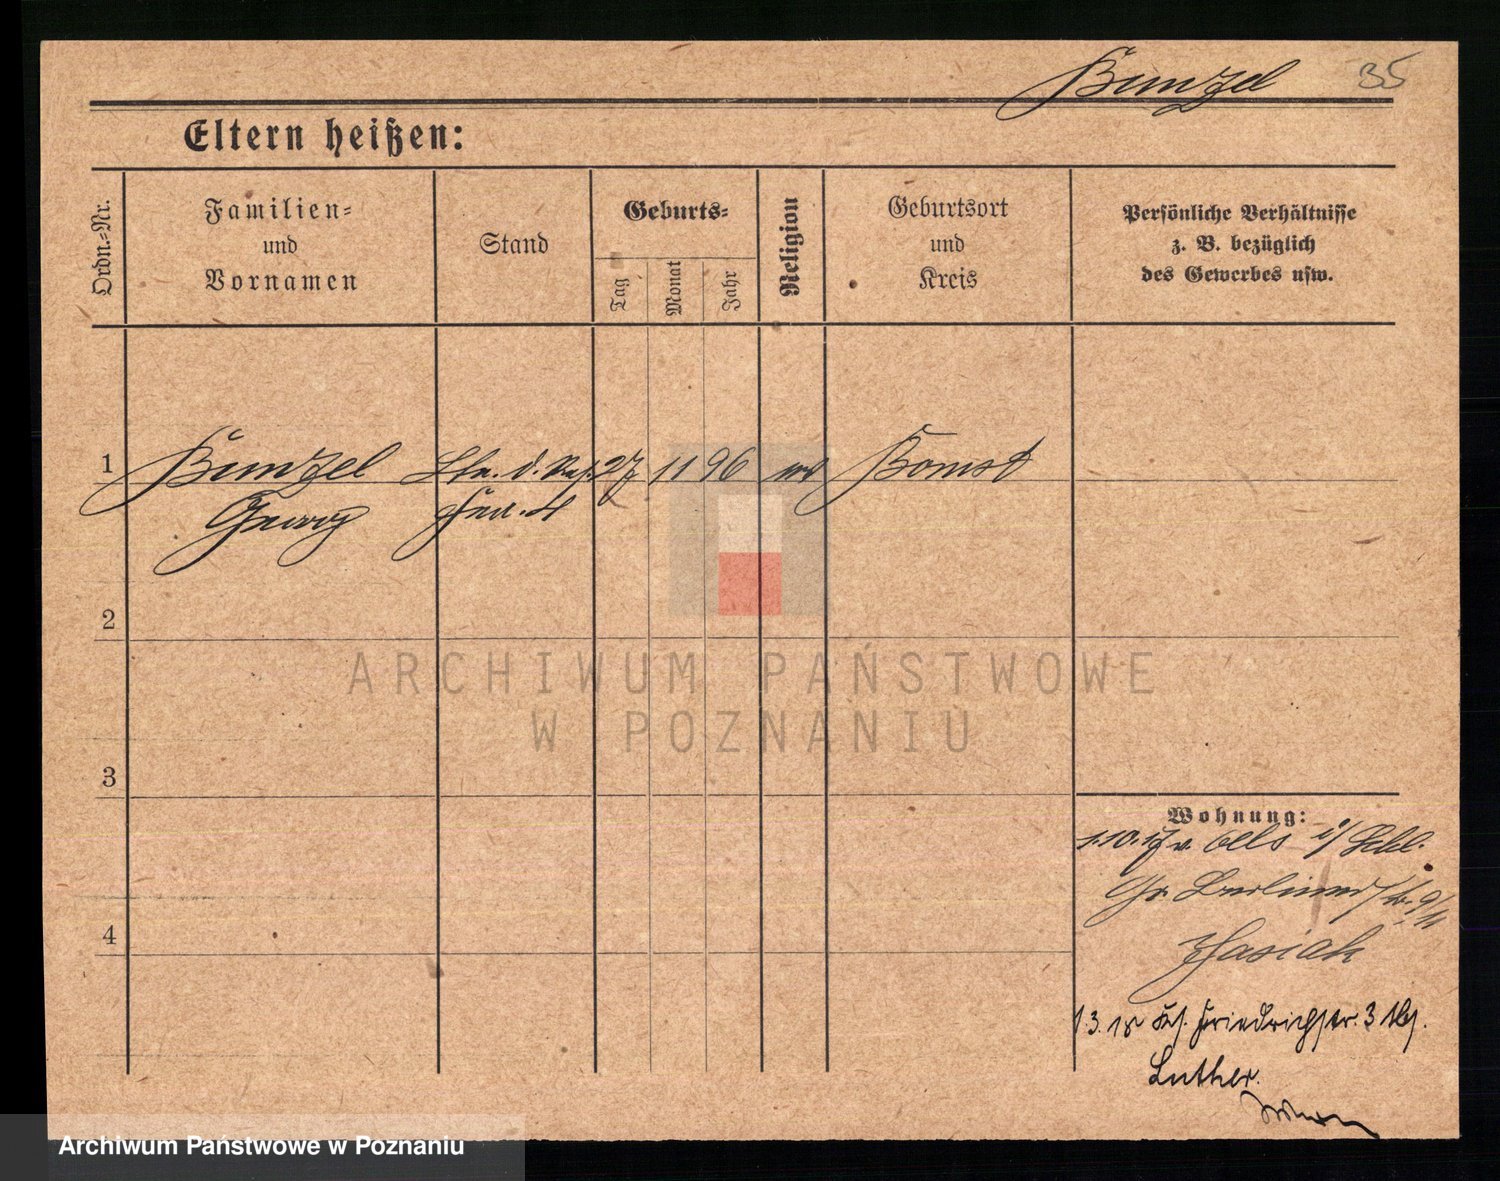 Bunzel 35
Eltern heißen:
Ordn.-Nr.
Familien-
und
Vornamen
Stand
Geburts-
Tag
Monat
Jahr
Religion
Geburtsort
und
Kreis
Persönliche Verhältnisse
z. B. bezüglich
des Gewerbes usw.
1 Bunzel Ltn. d. Res. 27 11 96 Bomst
Georg
2
3
4
Wohnung:
1.10.17 v. Oels i/ Schl.
Gr. Berlinerstr. 9/11
Hasiak
13. 18 Friedrichstr. 3
Luther.
ARCHIWUM PAŃSTWOWE
W POZNANIU
Archiwum Państwowe w Poznaniu